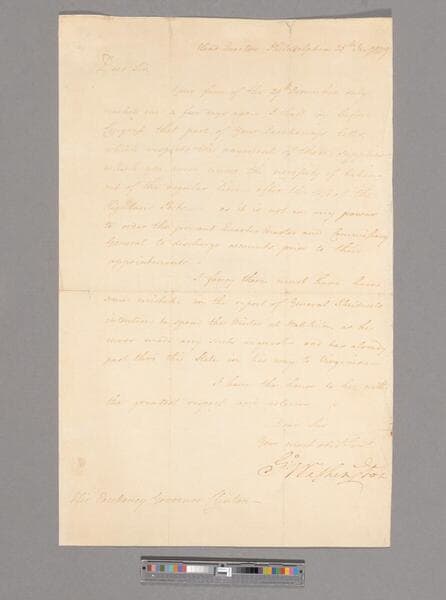 Head Quarters Philadelphia 25th Jan 1779
Dear Sir
Your favor of the 29th December only
reached me a few days ago. I shall lay before
Congress that part of your Excellency's letter
which respects the payment of those
which were under the necessity of
out of the regular line after the
State as it is not in my power
to order the present Quarter Master and Commissary
General to discharge accounts prior to their
appointments.
I fancy there must have been
some mistake in the report of General
intention to spend the Winter at as he
never made any such request and has already
past thro this State in his way to Virginia.
I have the honor to be with
the greatest respect and esteem
Dear Sir
Your most obt Servt
Go Washington
His Excellency Governor Clinton